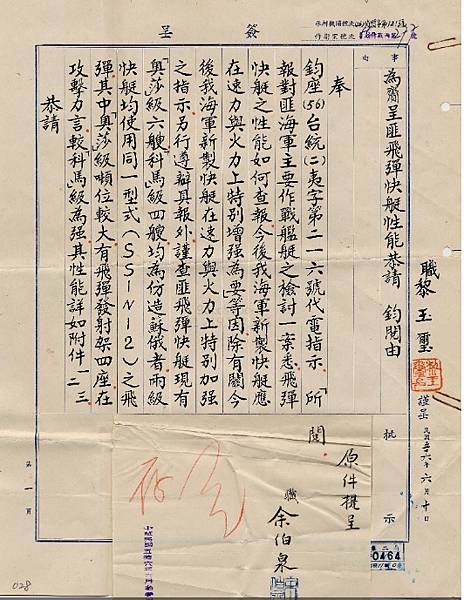 簽呈
事由
為齎呈匪飛彈快艇性能恭請　鈞閱由
職黎玉璽
謹呈
六月十日
批示
奉
鈞座(56)台統(二)夷字第二一六號代電指示「所
報對匪海軍主要作戰艦艇之檢討一案悉飛彈
快艇之性能如何查報今後我海軍新製快艇應
在速力與火力上特別增強為要等因除有關今
後我海軍新製快艇在速力與火力上特別加強
之指示另行遵辦具報外謹查匪飛彈快艇現有
「奧」莎級六艘「科」馬級四艘均為仿造蘇俄者兩級
快艇均使用同一型式(SSIN12)之飛
彈其中「奧」莎級噸位較大有飛彈發射架四座在
攻擊力言較「科」馬級為強其性能詳如附件一二三
恭請
原件提呈
閱
職余伯泉
第一頁
0464
028